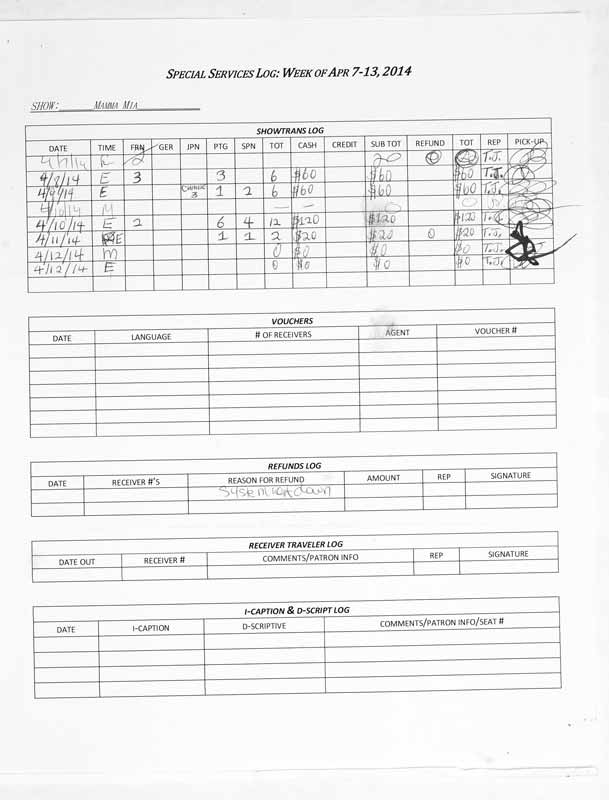 SPECIAL SERVICES LOG: WEEK OF APR 7-13, 2014
SHOW: MAMMA MIA
SHOWTRANS LOG
DATE TIME FRN GER JPN PTG SPN TOT CASH CREDIT SUB TOT REFUND TOT REP PICK-UP
4/7/14 E 2 20 0 T.J.
4/8/14 E 3 3 6 $60 $60 $60 T.J.
4/9/14 E 3 1 2 6 $60 $60 $60 T.J.
4/10/14 M — — 0 0 T.J.
4/10/14 E 2 6 4 12 $120 $120 $120 T.J.
4/11/14 E 1 1 2 $20 $20 0 $20 T.J.
4/12/14 M 0 $0 $0 $0 T.J.
4/12/14 E 0 $0 $0 $0 T.J.
VOUCHERS
DATE LANGUAGE # OF RECEIVERS AGENT VOUCHER #
REFUNDS LOG
DATE RECEIVER #'S REASON FOR REFUND AMOUNT REP SIGNATURE
down
RECEIVER TRAVELER LOG
DATE OUT RECEIVER # COMMENTS/PATRON INFO REP SIGNATURE
I-CAPTION & D-SCRIPT LOG
DATE I-CAPTION D-SCRIPTIVE COMMENTS/PATRON INFO/SEAT #